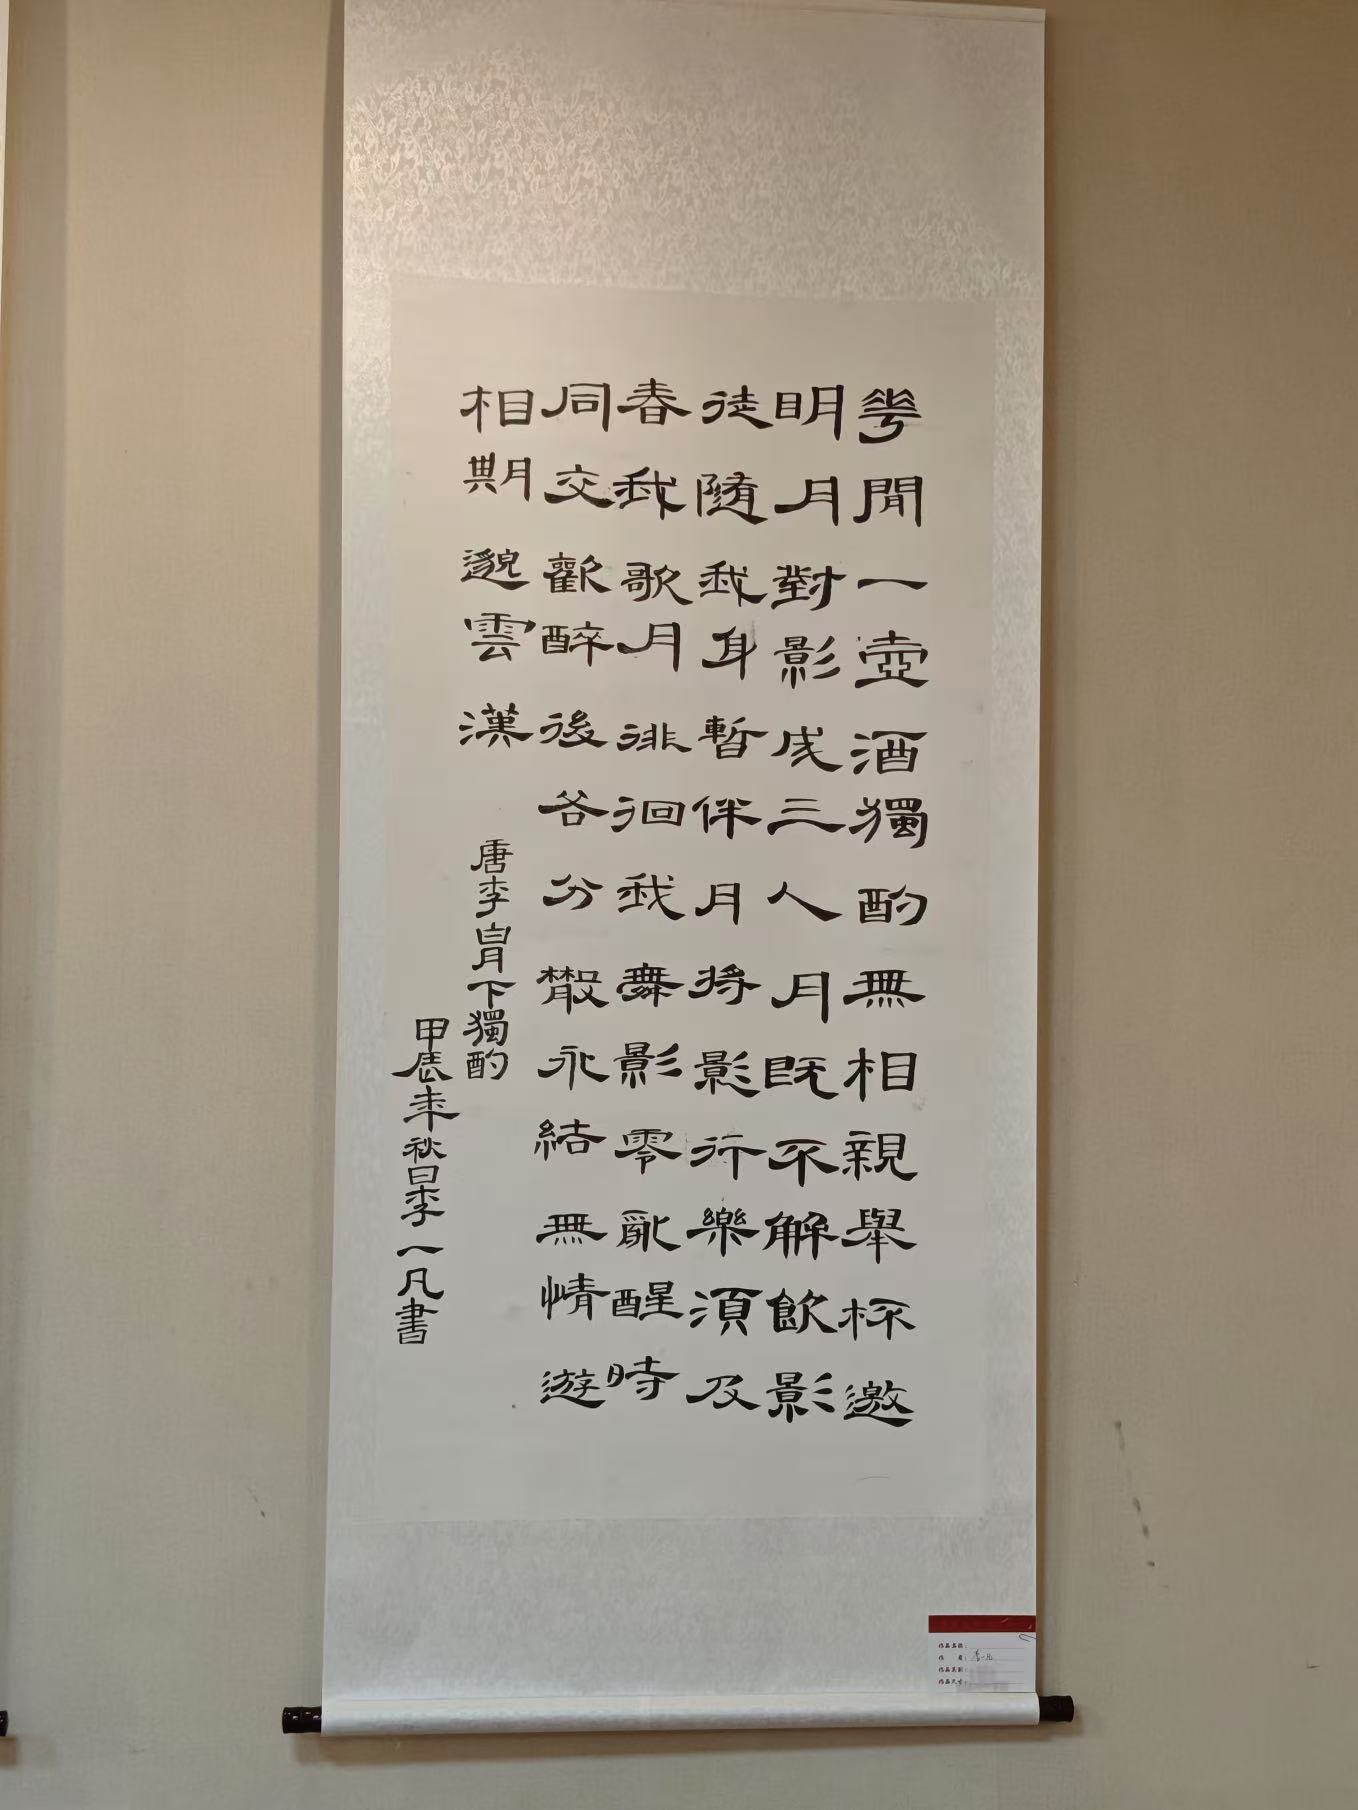 華閒一壺酒獨酌無相親舉杯邀
明月對影成三人月既不解飲影
徒隨我身暫伴月將影行樂須及
春我歌月徘徊我舞影零亂醒時
同交歡醉後各分散永結無情遊
相期邈雲漢
唐李白月下獨酌
甲辰年秋日李一凡書
作品名称：
作　者：李一凡
作品类别：
作品尺寸：